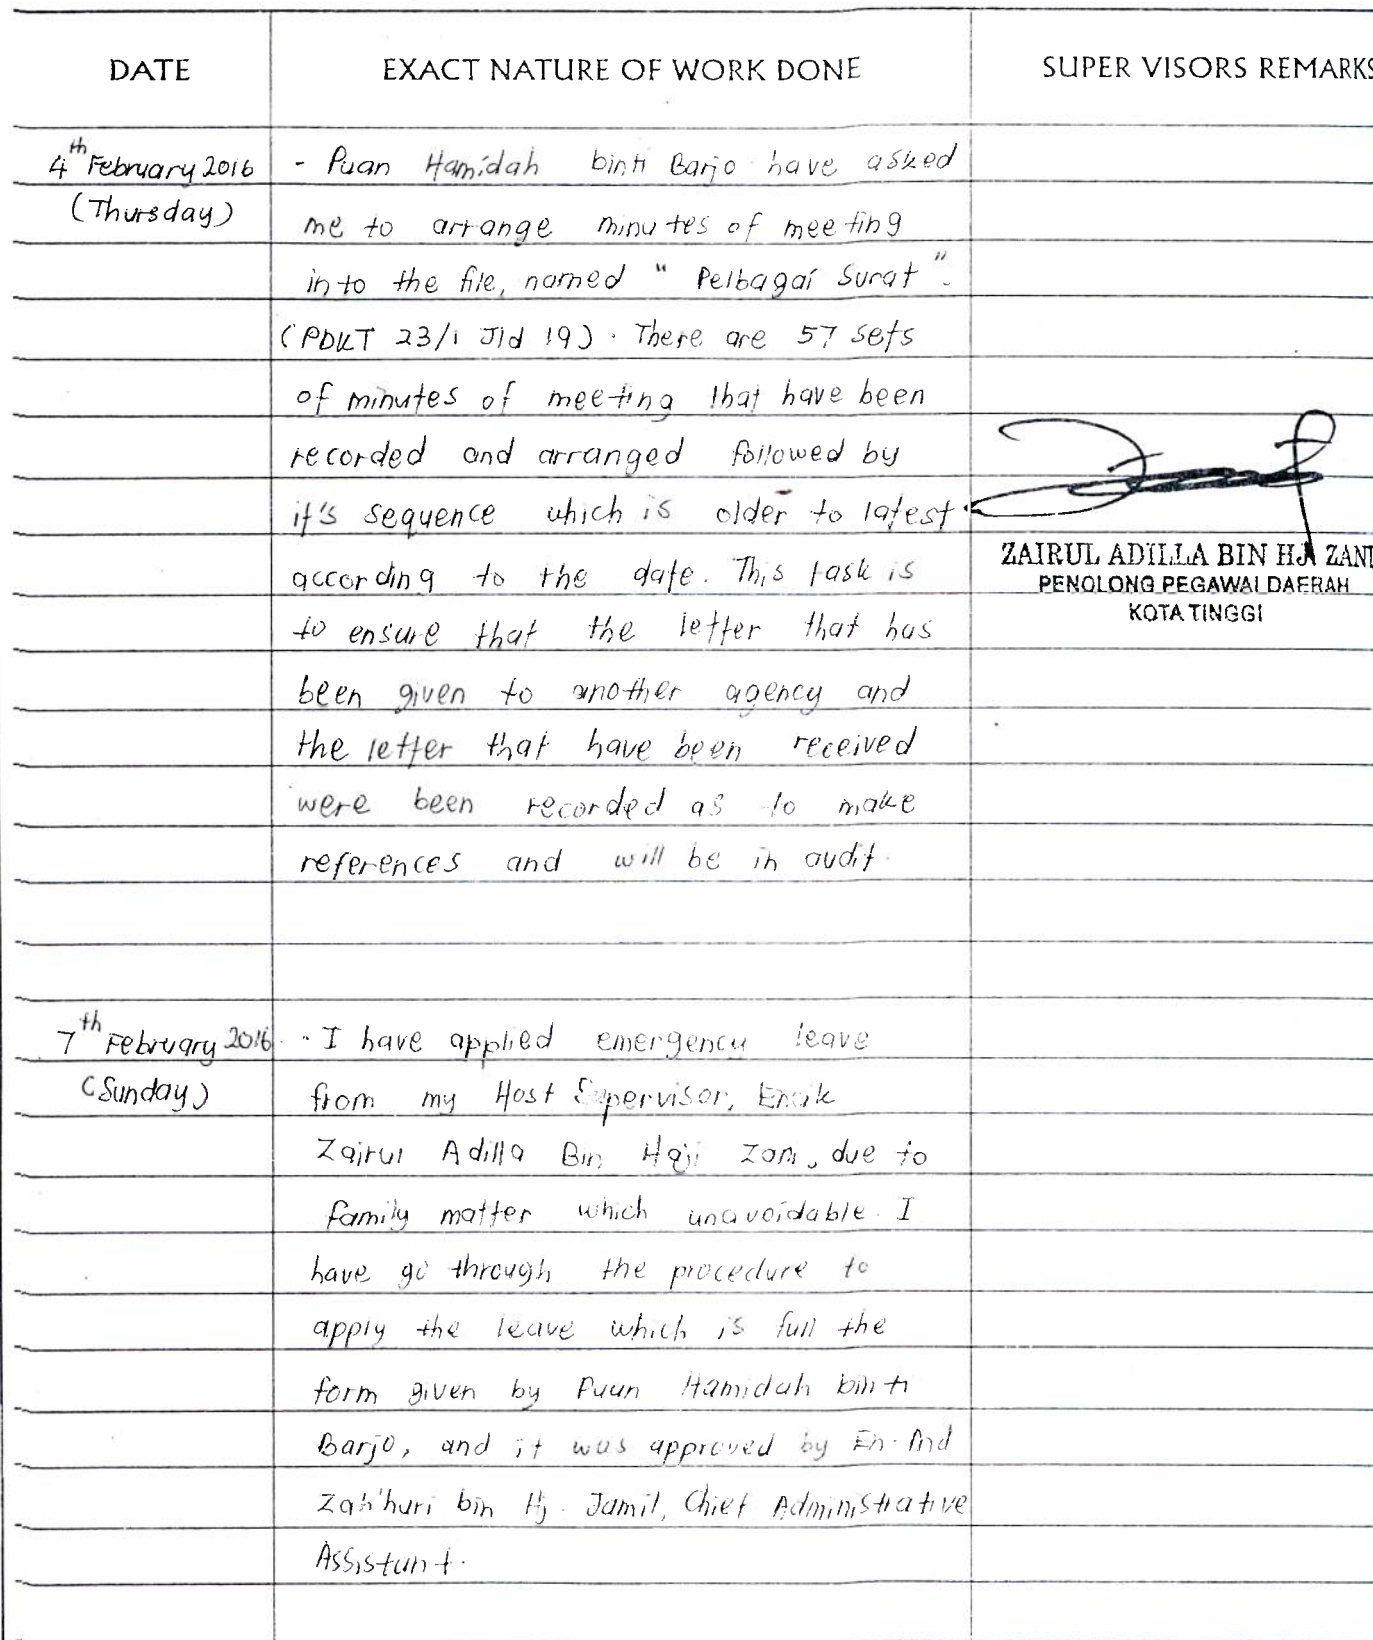 DATE EXACT NATURE OF WORK DONE SUPER VISORS REMARKS
4th February 2016 - Puan Hamidah binti Barjo have asked
(Thursday) me to arrange minutes of meeting
into the file, named " Pelbagai Surat ".
(PDKT 23/1 Jld 19). There are 57 sets
of minutes of meeting that have been
recorded and arranged followed by
it's sequence which is older to latest
according to the date. This task is
to ensure that the letter that has
been given to another agency and
the letter that have been received
were been recorded as to make
references and will be in audit.
ZAIRUL ADILLA BIN HJ ZANI
PENOLONG PEGAWAI DAERAH
KOTA TINGGI
7th February 2016 - I have applied emergency leave
(Sunday) from my Host Supervisor, Encik
Zairul Adilla Bin Haji Zani, due to
family matter which unavoidable. I
have go through the procedure to
apply the leave which is full the
form given by Puan Hamidah binti
Barjo, and it was approved by En. Md
Zah'huri bin Hj. Jamil, Chief Administrative
Assistant.